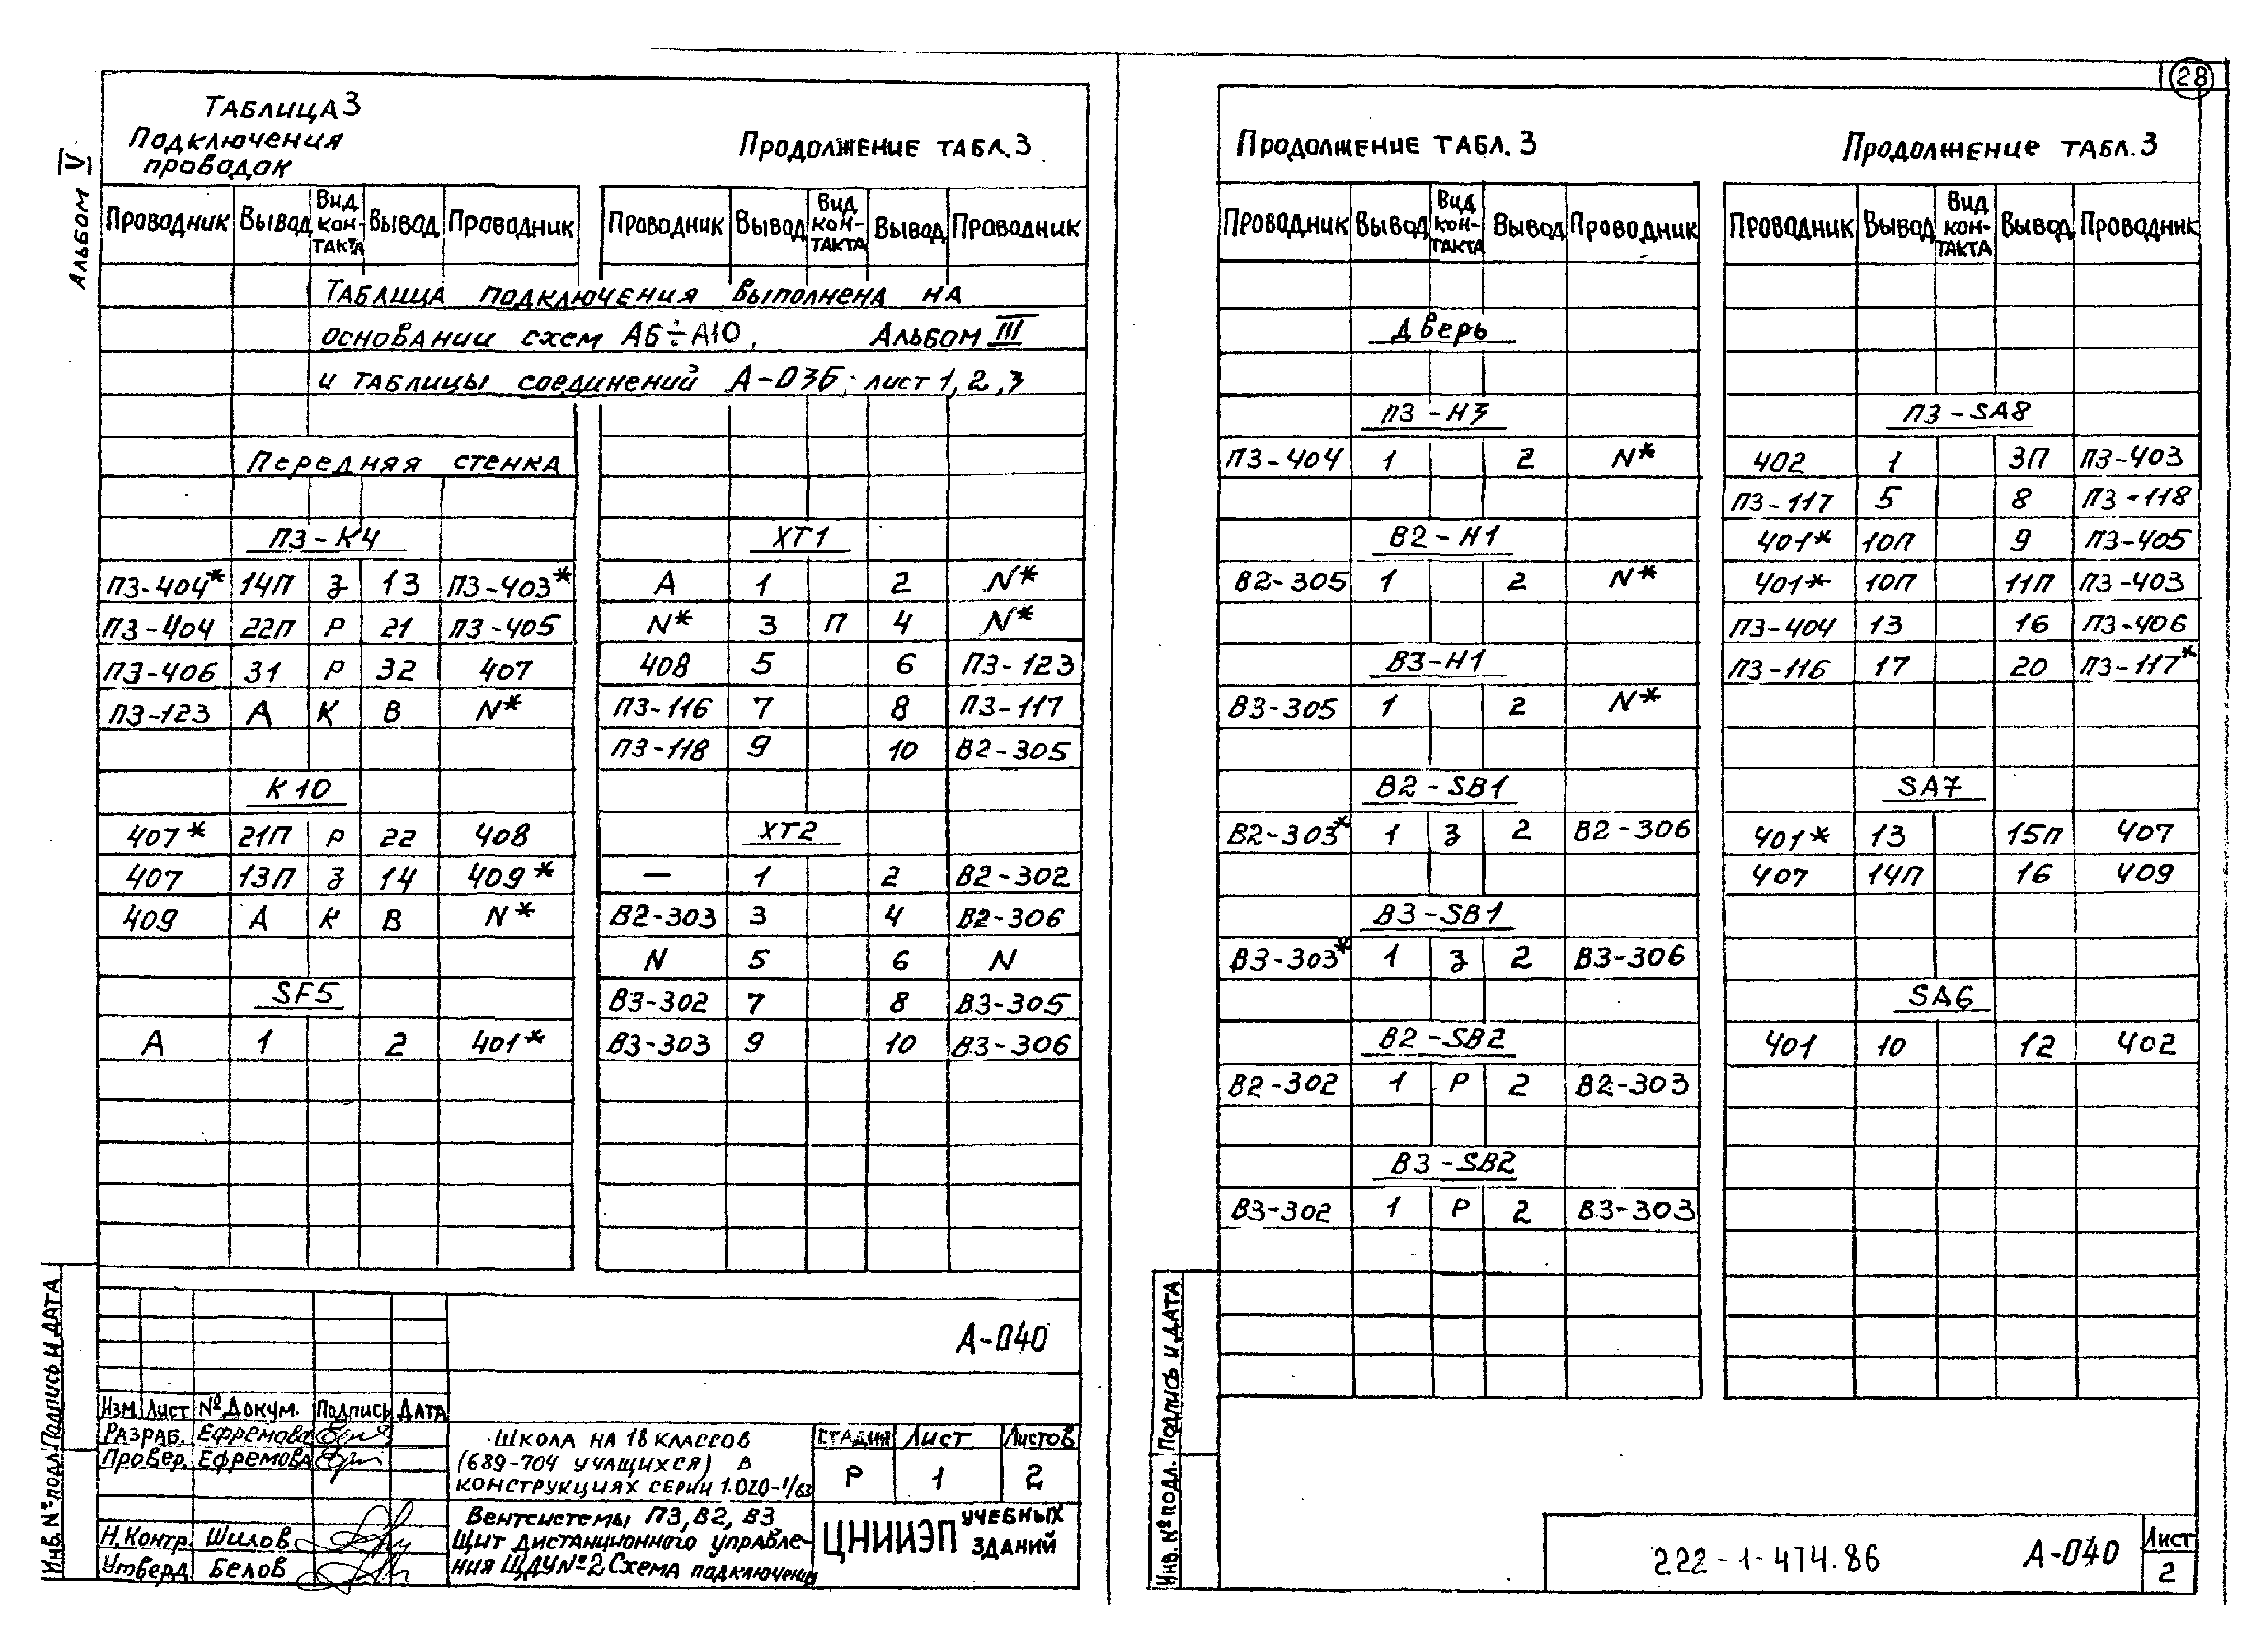 Альбом V
28
Таблица 3
Подключения
проводок
Продолжение табл. 3
Проводник Вывод Вид контакта Вывод Проводник
Проводник Вывод Вид контакта Вывод Проводник
Таблица подключения выполнена на
основании схем А6÷А10, Альбом III
и таблицы соединений А-036; лист 1, 2, 3
Передняя стенка
П3-К4
П3-404* 14П З 13 П3-403*
П3-404 22П Р 21 П3-405
П3-406 31 Р 32 407
П3-123 А К В N*
К10
407* 21П Р 22 408
407 13П З 14 409*
409 А К В N*
SF5
А 1 2 401*
ХТ1
А 1 2 N*
N* 3 П 4 N*
408 5 6 П3-123
П3-116 7 8 П3-117
П3-118 9 10 В2-305
ХТ2
— 1 2 В2-302
В2-303 3 4 В2-306
N 5 6 N
В3-302 7 8 В3-305
В3-303 9 10 В3-306
А-040
Изм. Лист № докум. Подпись Дата
Разраб. Ефремова
Провер. Ефремова
Н.контр. Шилов
Утверд. Белов
Школа на 18 классов
(689-704 учащихся) в
конструкциях серии 1.020-1/83
Стадия Лист Листов
Р 1 2
Вентсистемы П3, В2, В3
Щит дистанционного управле-
ния ЩДУ№2 Схема подключения
ЦНИИЭП учебных
зданий
Инв. № подл. Подпись и дата
Продолжение табл. 3
Продолжение табл. 3
Проводник Вывод Вид контакта Вывод Проводник
Проводник Вывод Вид контакта Вывод Проводник
Дверь
П3-Н3
П3-404 1 2 N*
В2-Н1
В2-305 1 2 N*
В3-Н1
В3-305 1 2 N*
В2-SB1
В2-303* 1 З 2 В2-306
В3-SB1
В3-303* 1 З 2 В3-306
В2-SB2
В2-302 1 Р 2 В2-303
В3-SB2
В3-302 1 Р 2 В3-303
П3-SA8
402 1 3П П3-403
П3-117 5 8 П3-118
401* 10П 9 П3-405
401* 10П 11П П3-403
П3-404 13 16 П3-406
П3-116 17 20 П3-117*
SA7
401* 13 15П 407
407 14П 16 409
SA6
401 10 12 402
Инв. № подл. Подпись и дата
222-1-474.86 А-040 Лист
2